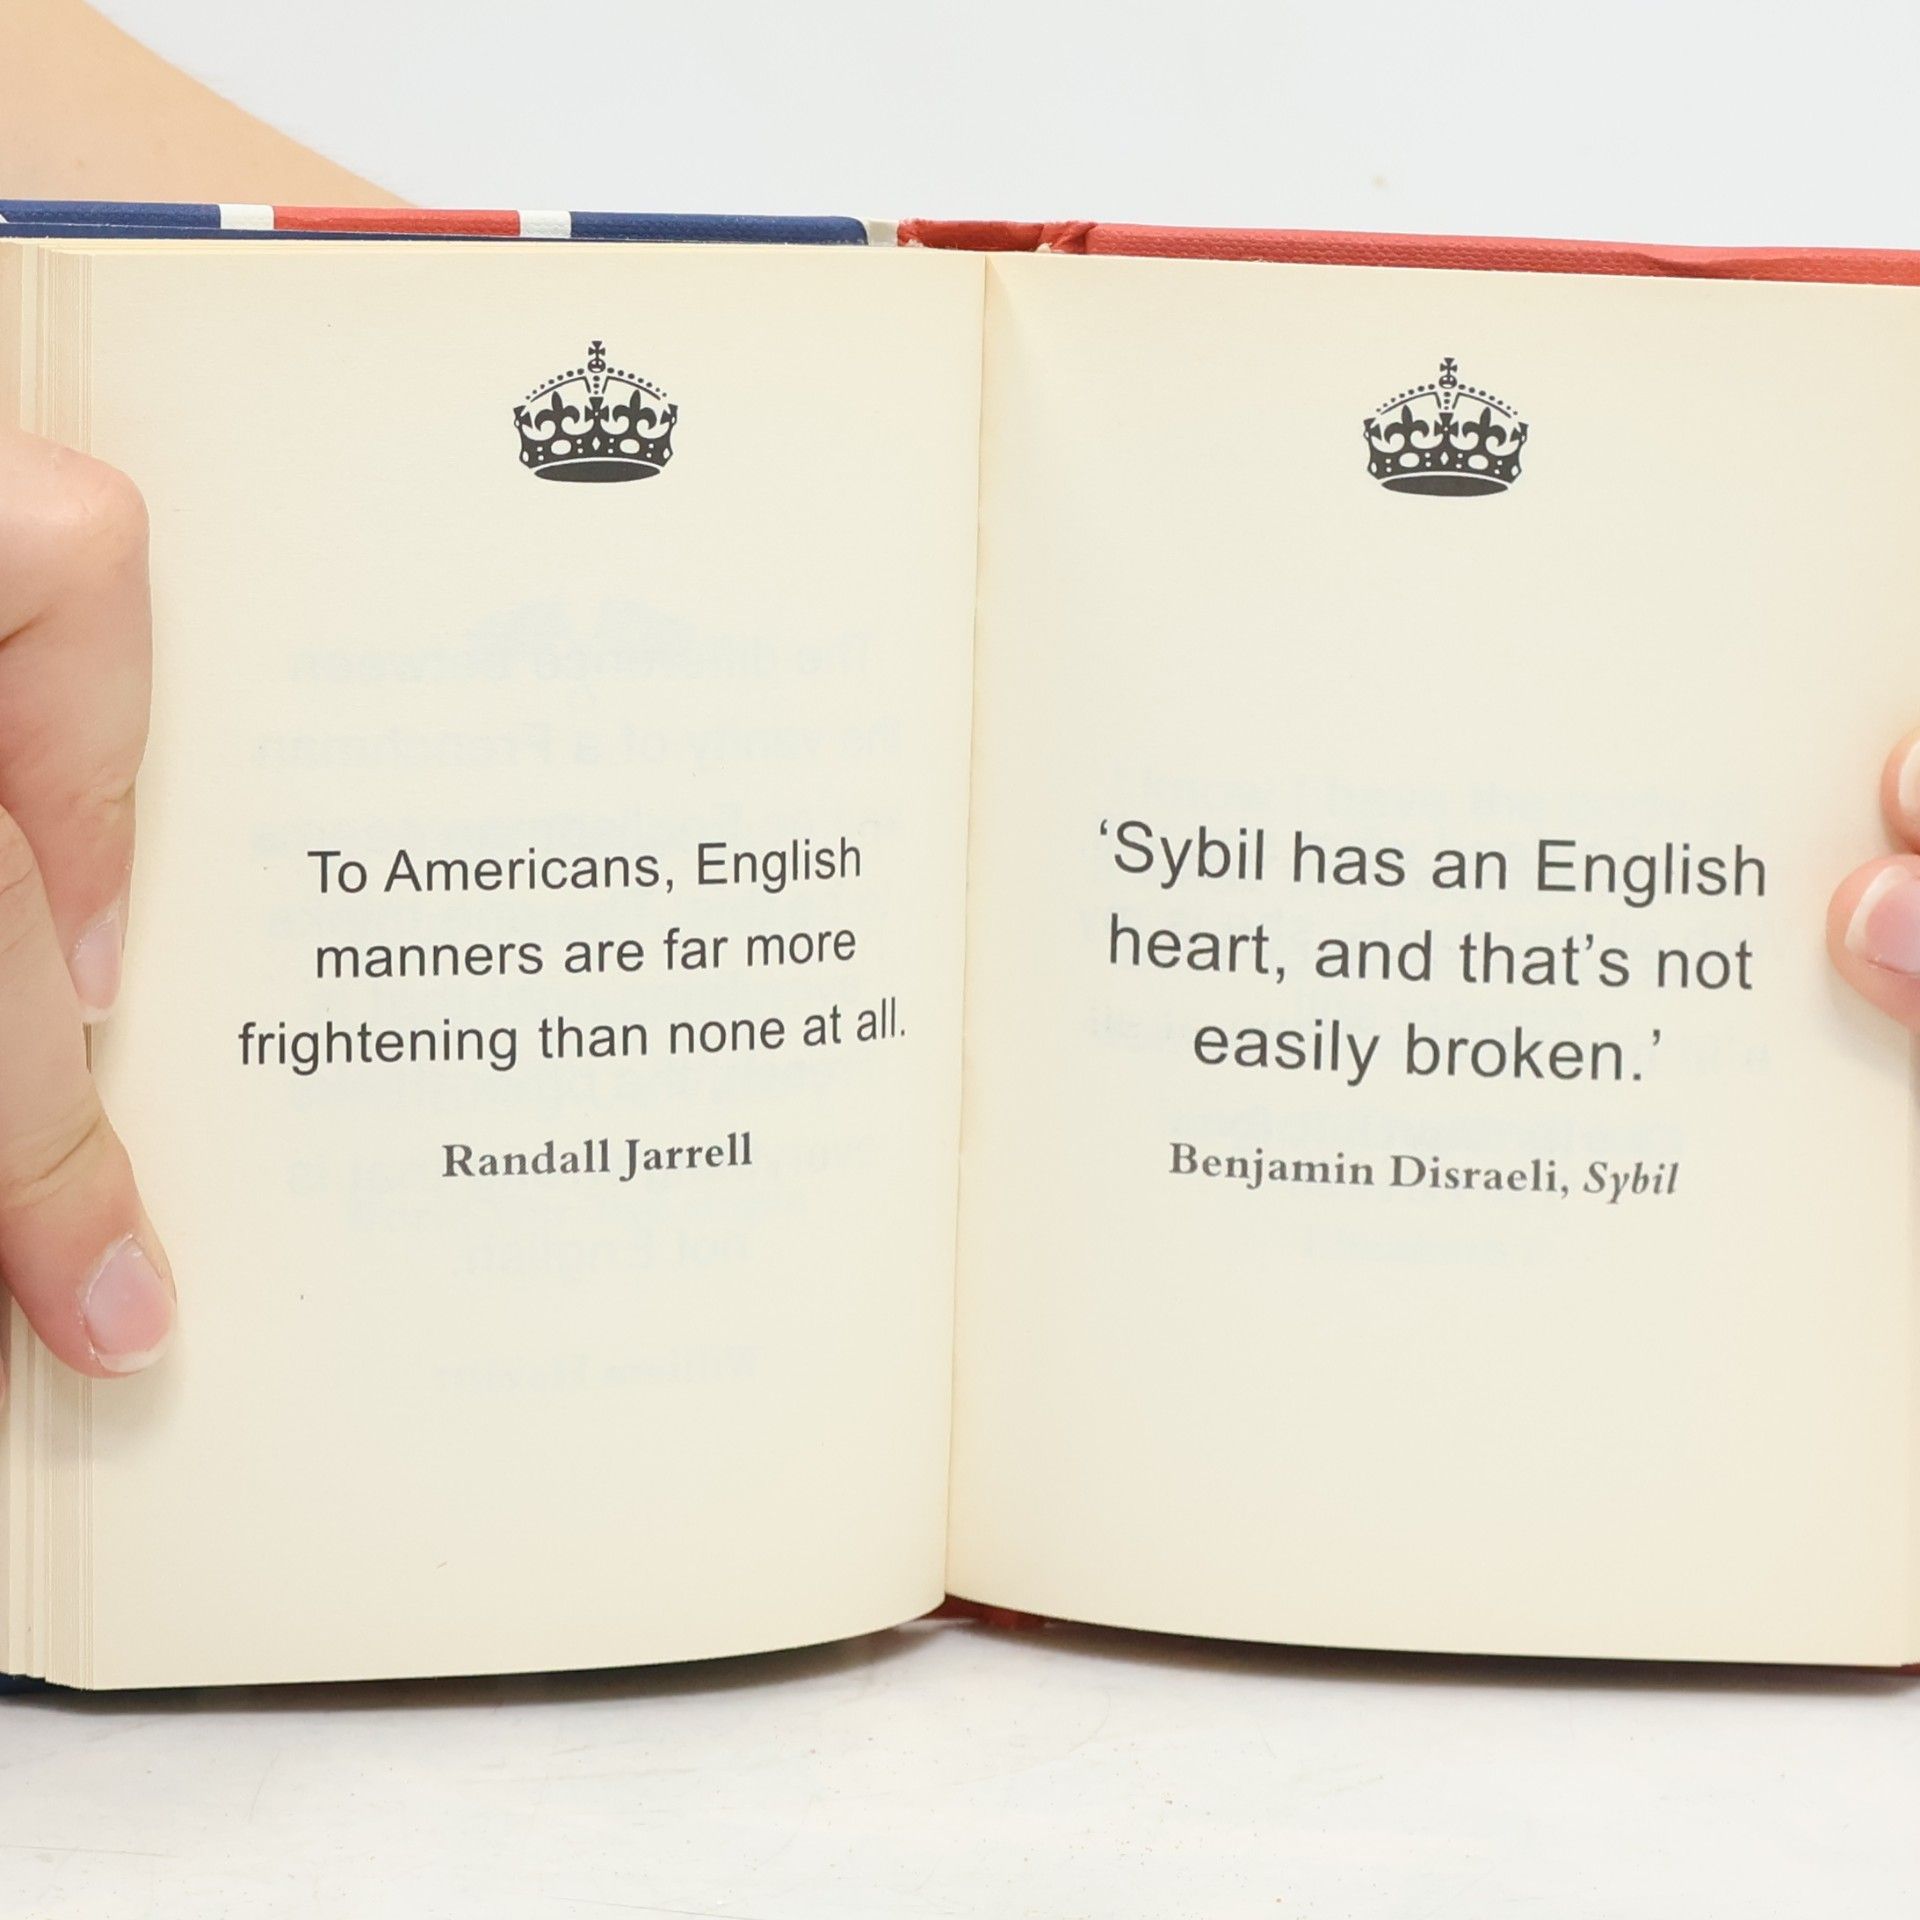 To Americans, English
manners are far more
frightening than none at all.
Randall Jarrell
‘Sybil has an English
heart, and that’s not
easily broken.’
Benjamin Disraeli, Sybil